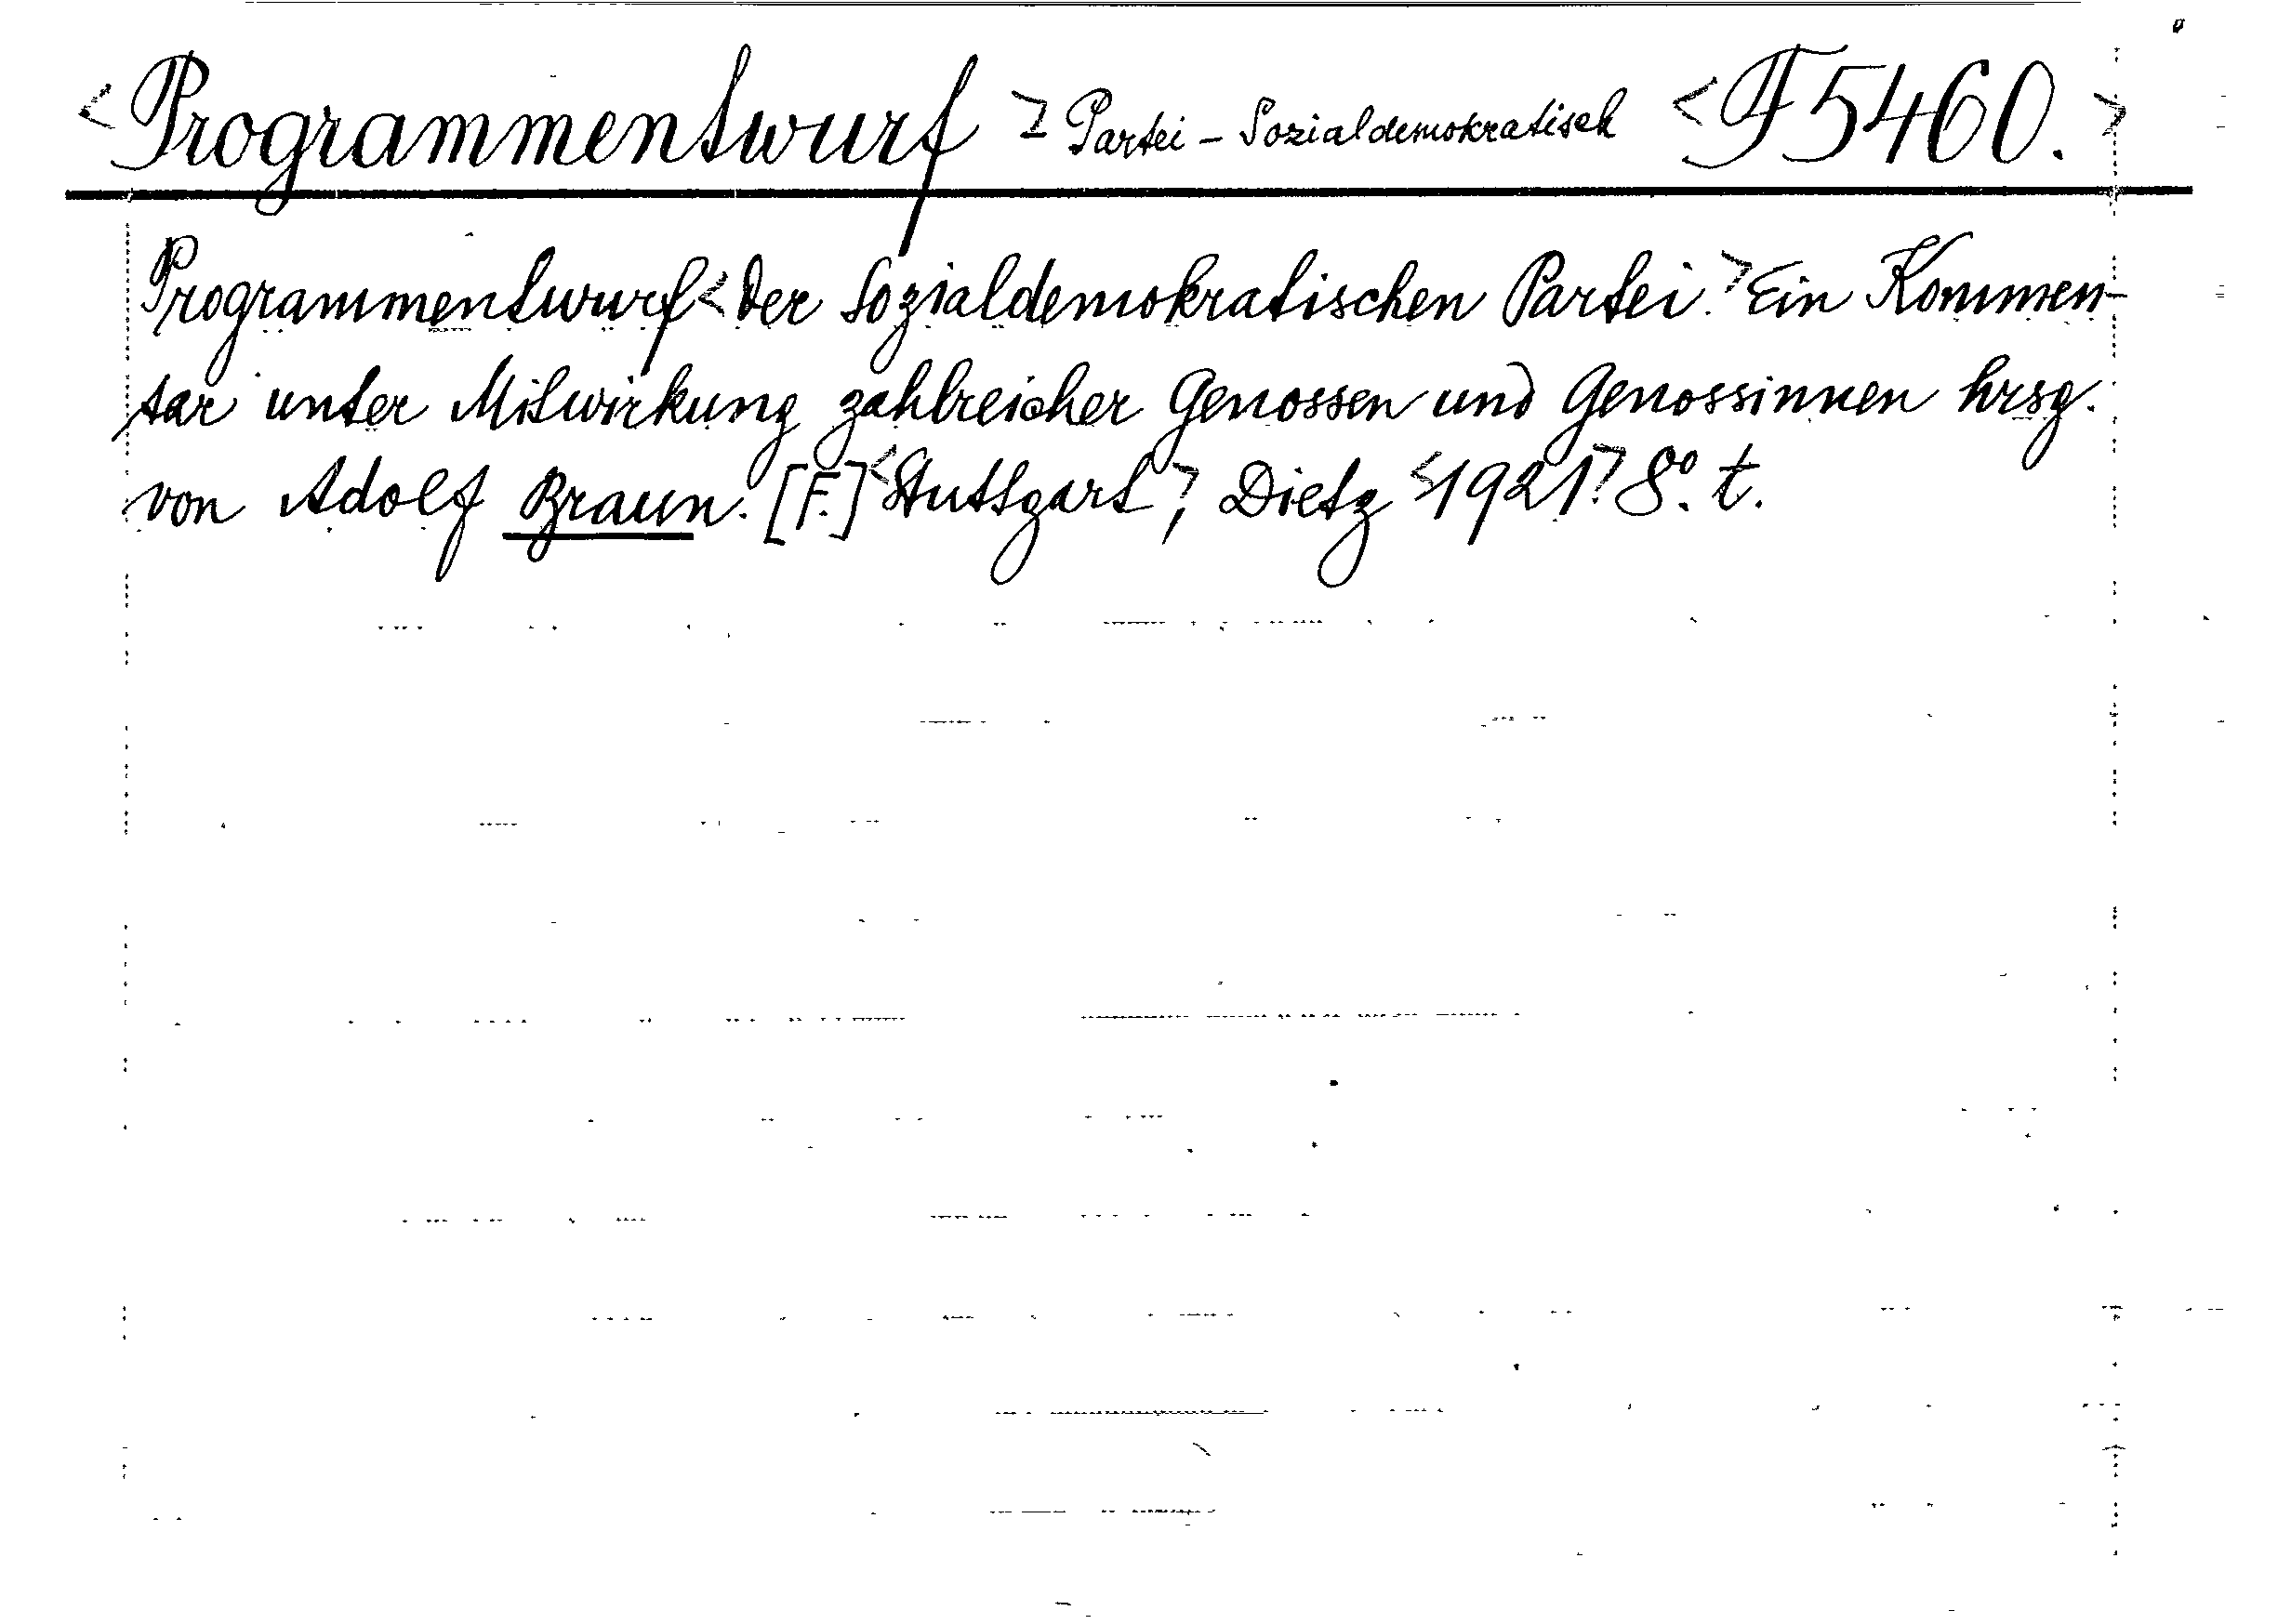 <Programmentwurf> Partei - Sozialdemokratisch <F 5460.>
Programmentwurf <der Sozialdemokratischen Partei.> Ein Kommen-
tar unter Mitwirkung zahlreicher Genossen und Genossinnen hrsg.
von Adolf Braun. [F.] <Stuttgart>, Dietz <1921> 8°. t.